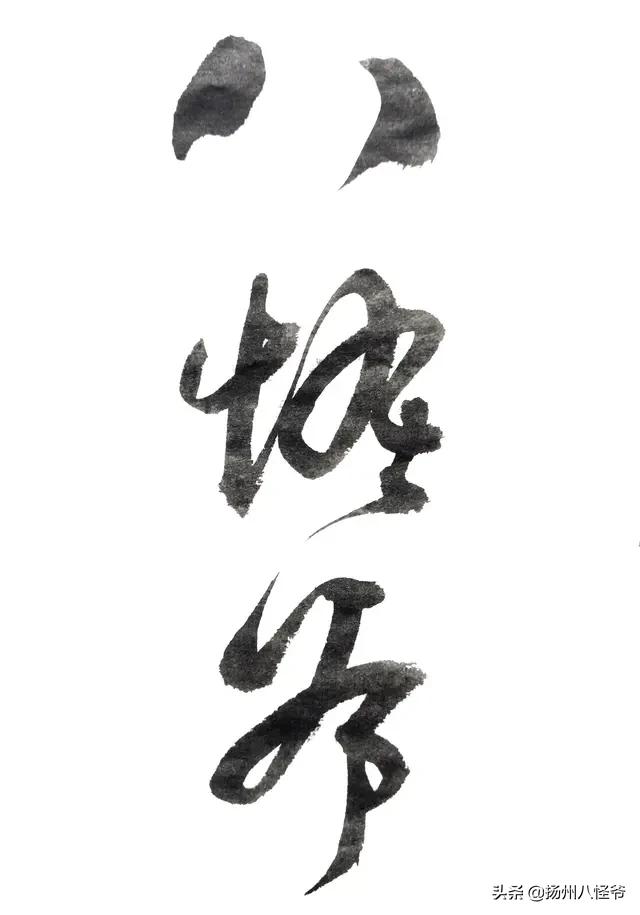 八
怪
爷
头条 @扬州八怪爷